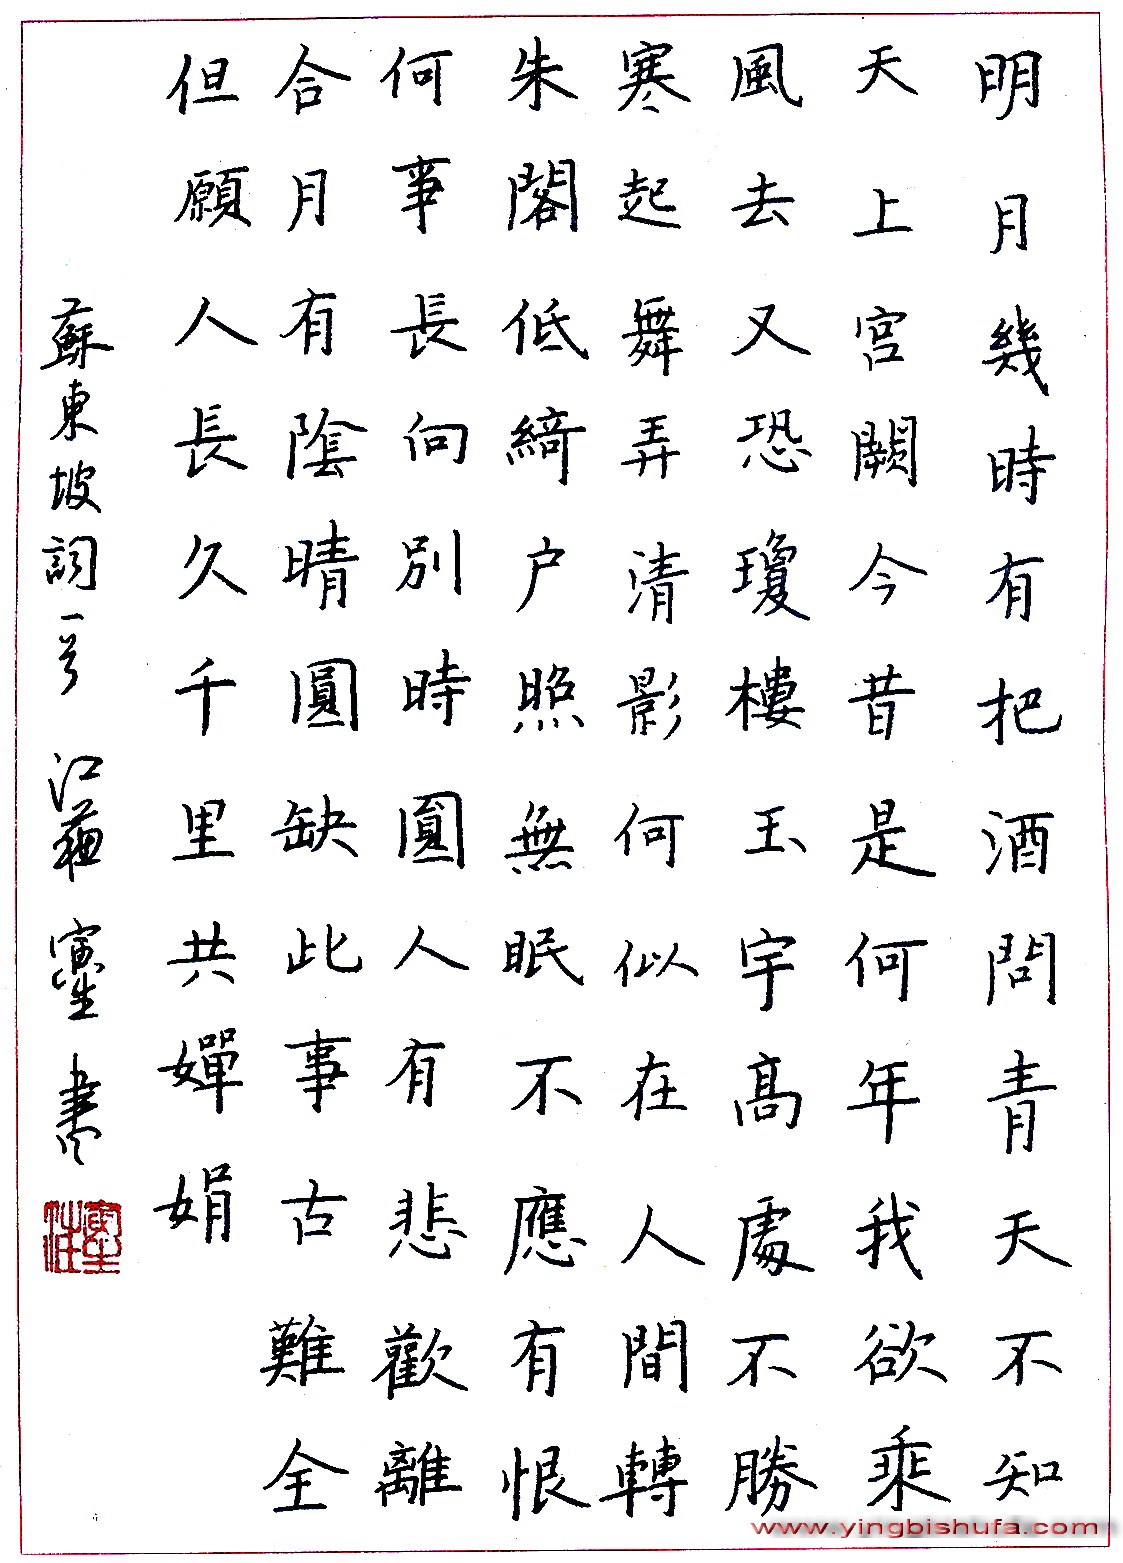 明月幾時有把酒問青天不知
天上宮闕今昔是何年我欲乘
風去又恐瓊樓玉宇髙處不勝
寒起舞弄清影何似在人間轉
朱閣低綺户照無眠不應有恨
何事長向別時圓人有悲歡離
合月有陰晴圓缺此事古難全
但願人長久千里共嬋娟
蘇東坡詞一首 江蘇 書
www.yingbishufa.com